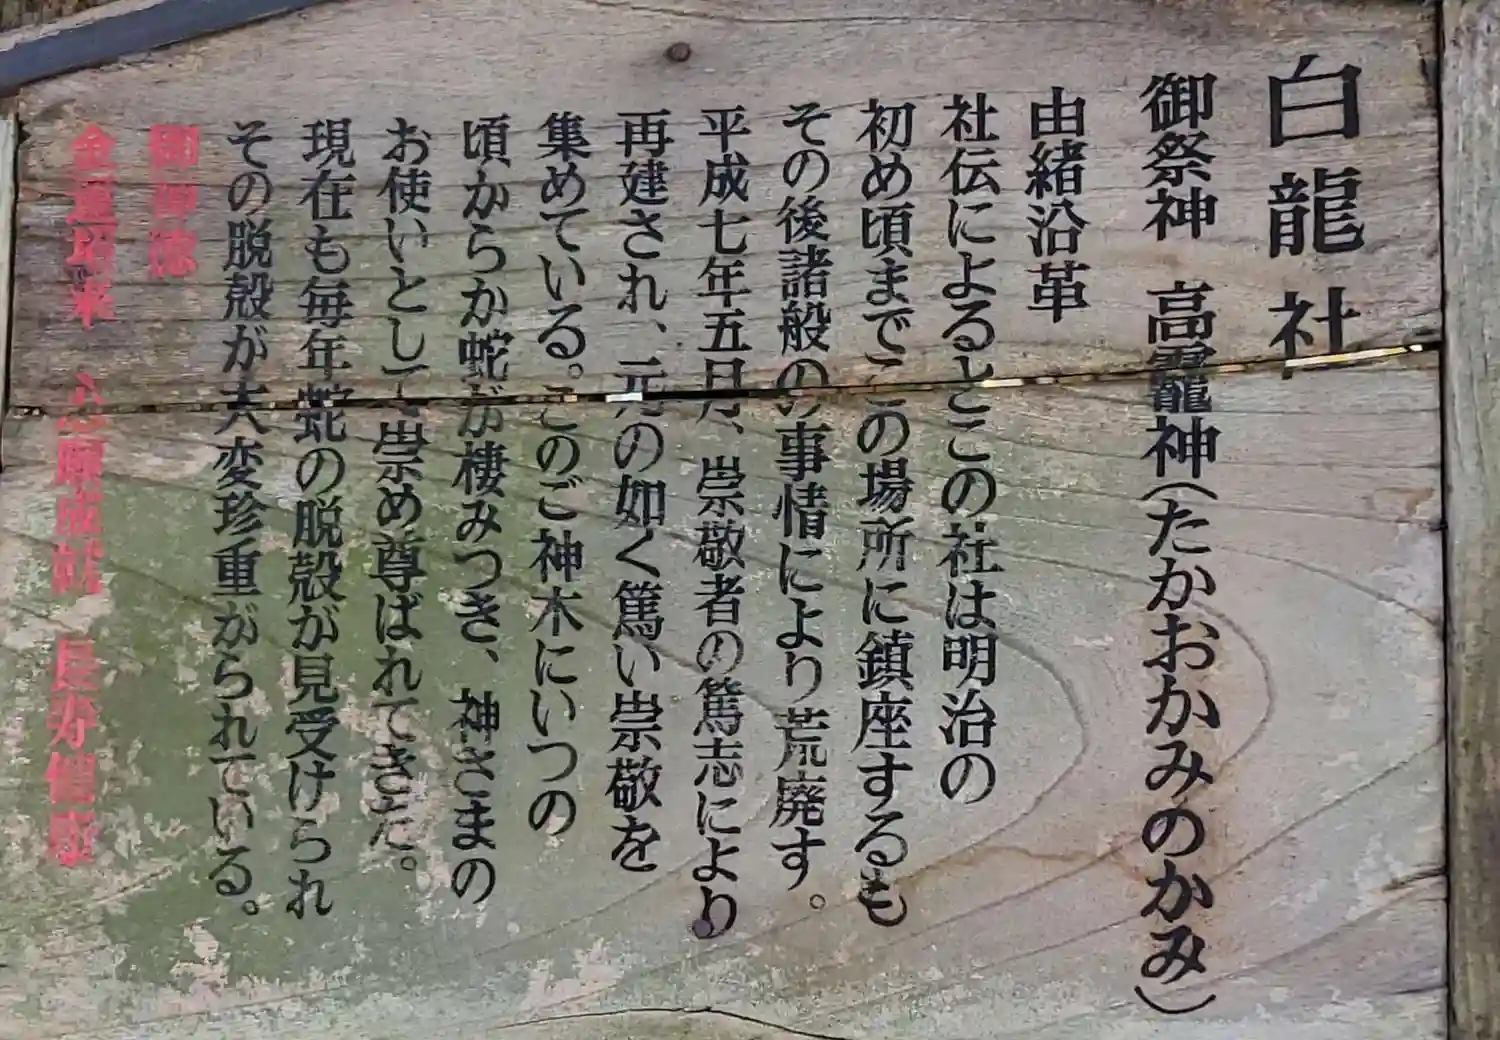 白龍社
御祭神　高龗神（たかおかみのかみ）
由緒沿革
社伝によるとこの社は明治の
初め頃までこの場所に鎮座するも
その後諸般の事情により荒廃す。
平成七年五月、崇敬者の篤志により
再建され、元の如く篤い崇敬を
集めている。このご神木にいつの
頃からか蛇が棲みつき、神さまの
お使いとして崇め尊ばれてきた。
現在も毎年蛇の脱殻が見受けられ
その脱殻が大変珍重がられている。
御御徳
金運招来　心願成就　長寿健康